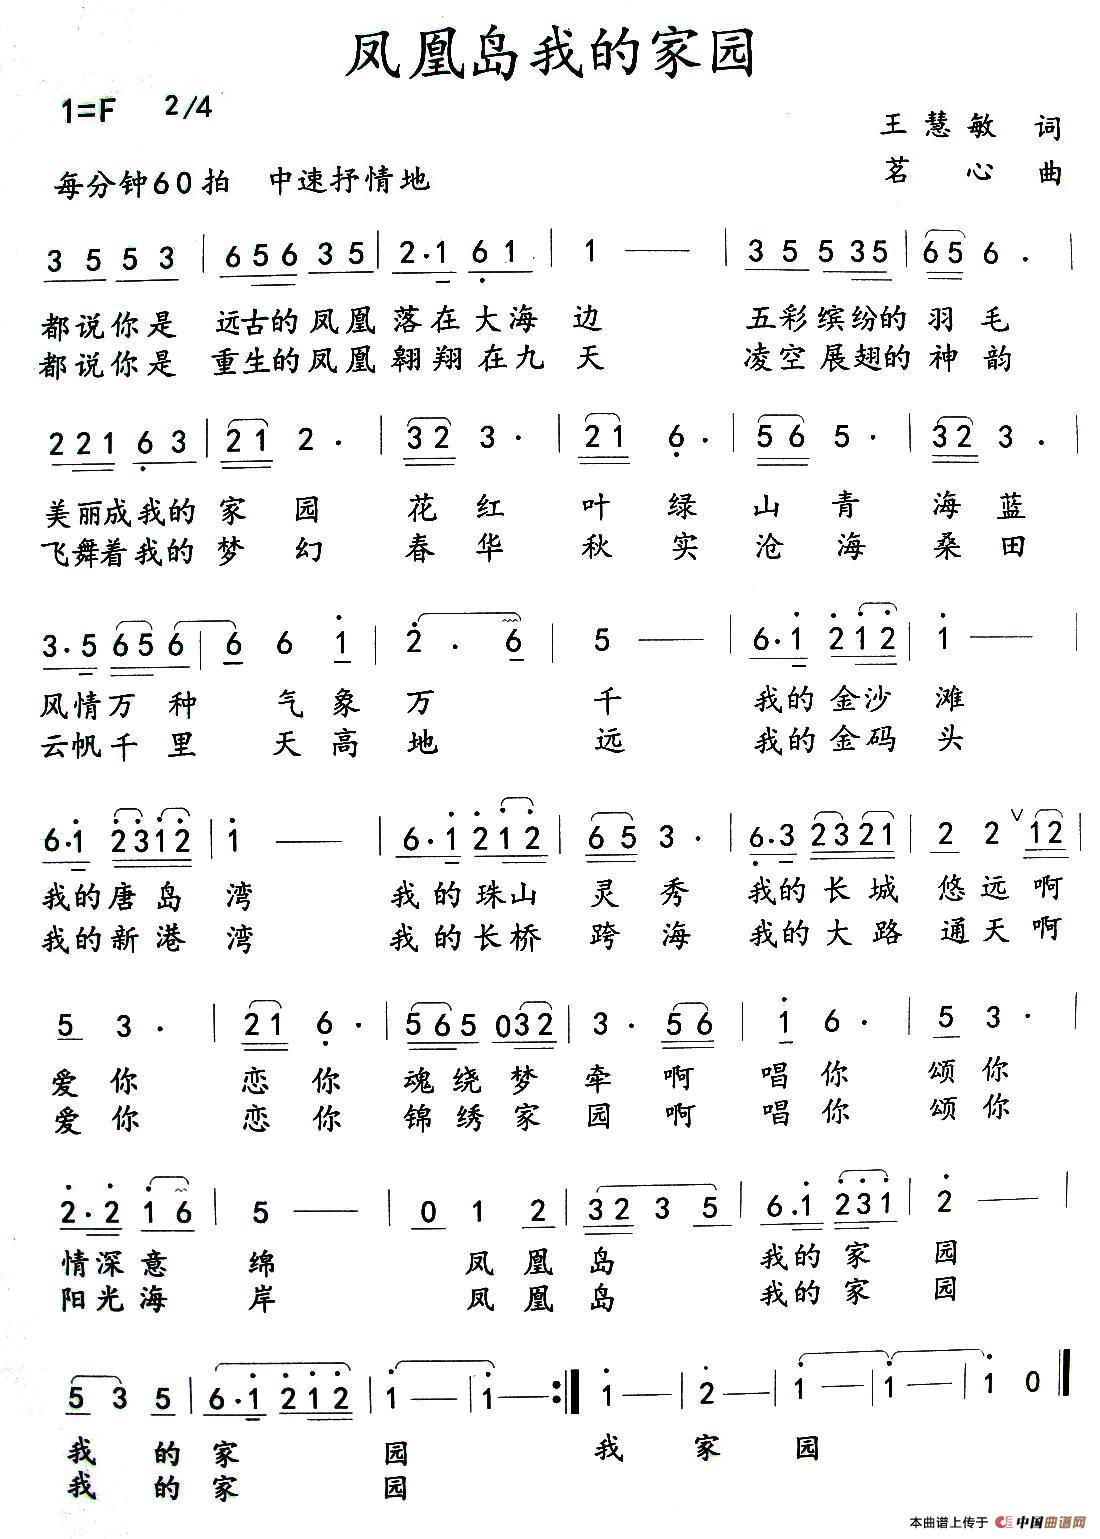 凤凰岛我的家园
1=F 2/4
王慧敏 词
每分钟60拍 中速抒情地
茗心 曲
3 5 5 3 | 6 5 6 3 5 | 2 · 1 6 1 | 1 — | 3 5 5 3 5 | 6 5 6 · |
都说你是 远古的凤凰 落在大海边 五彩缤纷的羽毛
都说你是 重生的凤凰 翱翔在九天 凌空展翅的神韵
2 2 1 6 3 | 2 1 2 · | 3 2 3 · | 2 1 6 · | 5 6 5 · | 3 2 3 · |
美丽成我的家园 花红叶绿山青海蓝
飞舞着我的梦幻 春华秋实沧海桑田
3 · 5 6 5 6 | 6 6 1 | 2 · 6 | 5 — | 6 · 1 2 1 2 | 1 — |
风情万种 气象万千 我的金沙滩
云帆千里 天高地远 我的金码头
6 · 1 2 3 1 2 | 1 — | 6 · 1 2 1 2 | 6 5 3 · | 6 · 3 2 3 2 1 | 2 2 ∨ 1 2 |
我的唐岛湾 我的珠山灵秀 我的长城悠远啊
我的新港湾 我的长桥跨海 我的大路通天啊
5 3 · | 2 1 6 · | 5 6 5 0 3 2 | 3 · 5 6 | 1 6 · | 5 3 · |
爱你 恋你 魂绕梦牵啊 唱你 颂你
爱你 恋你 锦绣家园啊 唱你 颂你
2 · 2 1 6 | 5 — | 0 1 2 | 3 2 3 5 | 6 · 1 2 3 1 | 2 — |
情深意绵 凤凰岛 我的家园
阳光海岸 凤凰岛 我的家园
5 3 5 | 6 · 1 2 1 2 | 1 — | 1 — :‖ 1 — | 2 — | 1 — | 1 — | 1 0 ‖
我的家园 我家园
我的家园
本曲谱上传于 中国曲谱网